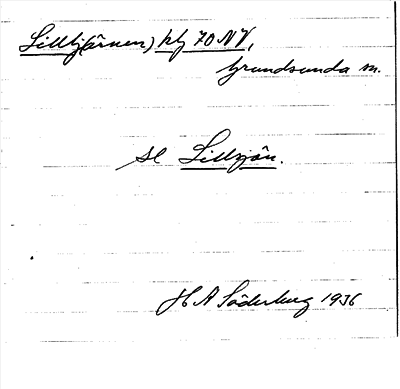 Lilltj(ärnen) kbj 70 NV,
Grundsunda sn.
se Lillsjön.
H A Söderberg 1936